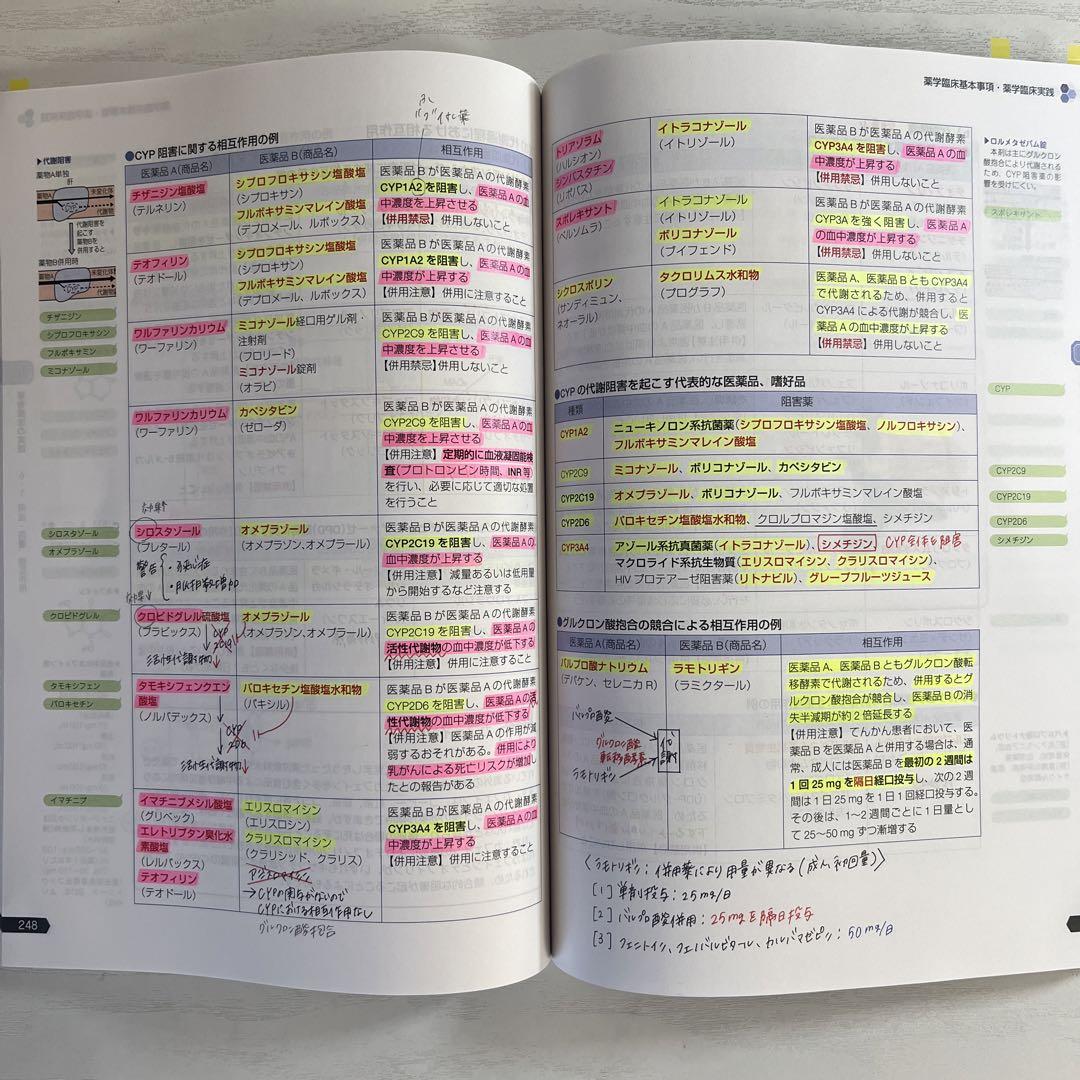 ●CYP阻害に関する相互作用の例
▶代謝阻害
薬物A単独
肝
未変化体
薬物A
CYP
代謝物
代謝阻害を
起こす
薬物Bを
併用すると
薬物B併用時
未変化体
薬物A
代謝物
チザニジン
シプロフロキサシン
フルボキサミン
ミコナゾール
シロスタゾール
オメプラゾール
クロピドグレル
タモキシフェン
パロキセチン
イマチニブ
248
医薬品A(商品名)
医薬品B(商品名)
相互作用
チザニジン塩酸塩
(テルネリン)
シプロフロキサシン塩酸塩
(シプロキサン)
フルボキサミンマレイン酸塩
(デプロメール、ルボックス)
医薬品Bが医薬品Aの代謝酵素
CYP1A2を阻害し、医薬品Aの血
中濃度を上昇させる
【併用禁忌】併用しないこと
テオフィリン
(テオドール)
シプロフロキサシン塩酸塩
(シプロキサン)
フルボキサミンマレイン酸塩
(デプロメール、ルボックス)
医薬品Bが医薬品Aの代謝酵素
CYP1A2を阻害し、医薬品Aの血
中濃度が上昇する
【併用注意】併用に注意すること
ワルファリンカリウム
(ワーファリン)
ミコナゾール経口用ゲル剤・
注射剤
(フロリード)
ミコナゾール錠剤
(オラビ)
医薬品Bが医薬品Aの代謝酵素
CYP2C9を阻害し、医薬品Aの血
中濃度を上昇させる
【併用禁忌】併用しないこと
ワルファリンカリウム
(ワーファリン)
カペシタビン
(ゼローダ)
医薬品Bが医薬品Aの代謝酵素
CYP2C9を阻害し、医薬品Aの血
中濃度を上昇させる
【併用注意】定期的に血液凝固能検
査(プロトロンビン時間、INR等)
を行い、必要に応じて適切な処置
を行うこと
シロスタゾール
(プレタール)
警告
オメプラゾール
(オメプラゾン、オメプラール)
医薬品Bが医薬品Aの代謝酵素
CYP2C19を阻害し、医薬品Aの
血中濃度が上昇する
【併用注意】減量あるいは低用量
から開始するなど注意する
クロピドグレル硫酸塩
(プラビックス)
CYP
2C19
活性代謝物↓
オメプラゾール
(オメプラゾン、オメプラール)
医薬品Bが医薬品Aの代謝酵素
CYP2C19を阻害し、医薬品Aの
活性代謝物の血中濃度が低下する
【併用注意】併用に注意すること
タモキシフェンクエン
酸塩
(ノルバデックス)
CYP
2D6
活性代謝物↓
パロキセチン塩酸塩水和物
(パキシル)
医薬品Bが医薬品Aの代謝酵素
CYP2D6を阻害し、医薬品Aの活
性代謝物の血中濃度が低下する
【併用注意】医薬品Aの作用が減
弱するおそれがある。併用により
乳がんによる死亡リスクが増加し
たとの報告がある
イマチニブメシル酸塩
(グリベック)
エレトリプタン臭化水
素酸塩
(レルパックス)
テオフィリン
(テオドール)
エリスロマイシン
(エリスロシン)
クラリスロマイシン
(クラリシッド、クラリス)
アジスロマイシン
→CYPの関与がないので
CYPにおける相互作用なし
医薬品Bが医薬品Aの代謝酵素
CYP3A4を阻害し、医薬品Aの血
中濃度が上昇する
【併用注意】併用に注意すること
グルクロン酸抱合
薬学臨床基本事項・薬学臨床実践
トリアゾラム
(ハルシオン)
シンバスタチン
(リポバス)
イトラコナゾール
(イトリゾール)
医薬品Bが医薬品Aの代謝酵素
CYP3A4を阻害し、医薬品Aの血
中濃度が上昇する
【併用禁忌】併用しないこと
スボレキサント
(ベルソムラ)
イトラコナゾール
(イトリゾール)
ボリコナゾール
(ブイフェンド)
医薬品Bが医薬品Aの代謝酵素
CYP3Aを強く阻害し、医薬品A
の血中濃度が上昇する
【併用禁忌】併用しないこと
シクロスポリン
(サンディミュン、
ネオーラル)
タクロリムス水和物
(プログラフ)
医薬品A、医薬品BともCYP3A4
で代謝されるため、併用すると
CYP3A4による代謝が競合し、医
薬品Aの血中濃度が上昇する
【併用禁忌】併用しないこと
●CYPの代謝阻害を起こす代表的な医薬品、嗜好品
種類
阻害薬
CYP1A2
ニューキノロン系抗菌薬(シプロフロキサシン塩酸塩、ノルフロキサシン)、
フルボキサミンマレイン酸塩
CYP2C9
ミコナゾール、ボリコナゾール、カペシタビン
CYP2C19
オメプラゾール、ボリコナゾール、フルボキサミンマレイン酸塩
CYP2D6
パロキセチン塩酸塩水和物、クロルプロマジン塩酸塩、シメチジン
CYP3A4
アゾール系抗真菌薬(イトラコナゾール)、シメチジン、CYP全体を阻害
マクロライド系抗生物質(エリスロマイシン、クラリスロマイシン)、
HIVプロテアーゼ阻害薬(リトナビル)、グレープフルーツジュース
●グルクロン酸抱合の競合による相互作用の例
医薬品A(商品名)
医薬品B(商品名)
相互作用
バルプロ酸ナトリウム
(デパケン、セレニカR)
ラモトリギン
(ラミクタール)
医薬品A、医薬品Bともグルクロン酸転
移酵素で代謝されるため、併用するとグ
ルクロン酸抱合が競合し、医薬品Bの消
失半減期が約2倍延長する
【併用注意】てんかん患者において、医
薬品Bを医薬品Aと併用する場合は、通
常、成人には医薬品Bを最初の2週間は
1回25mgを隔日経口投与し、次の2週
間は1日25mgを1日1回経口投与する。
その後は、1〜2週間ごとに1日量とし
て25〜50mgずつ漸増する
バルプロ酸
グルクロン酸
転移酵素
ラモトリギン
代
謝
〈ラモトリギン：併用薬により用量が異なる(成人、初回量)〉
[1] 単剤投与：25mg/日
[2] バルプロ酸併用：25mgを隔日投与
[3] フェニトイン、フェノバルビタール、カルバマゼピン：50mg/日
▶ロルメタゼパム錠
本剤は主にグルクロン
酸抱合により代謝され
るため、CYP阻害薬の影
響を受けにくい。
スボレキサント
CYP
CYP2C9
CYP2C19
CYP2D6
シメチジン